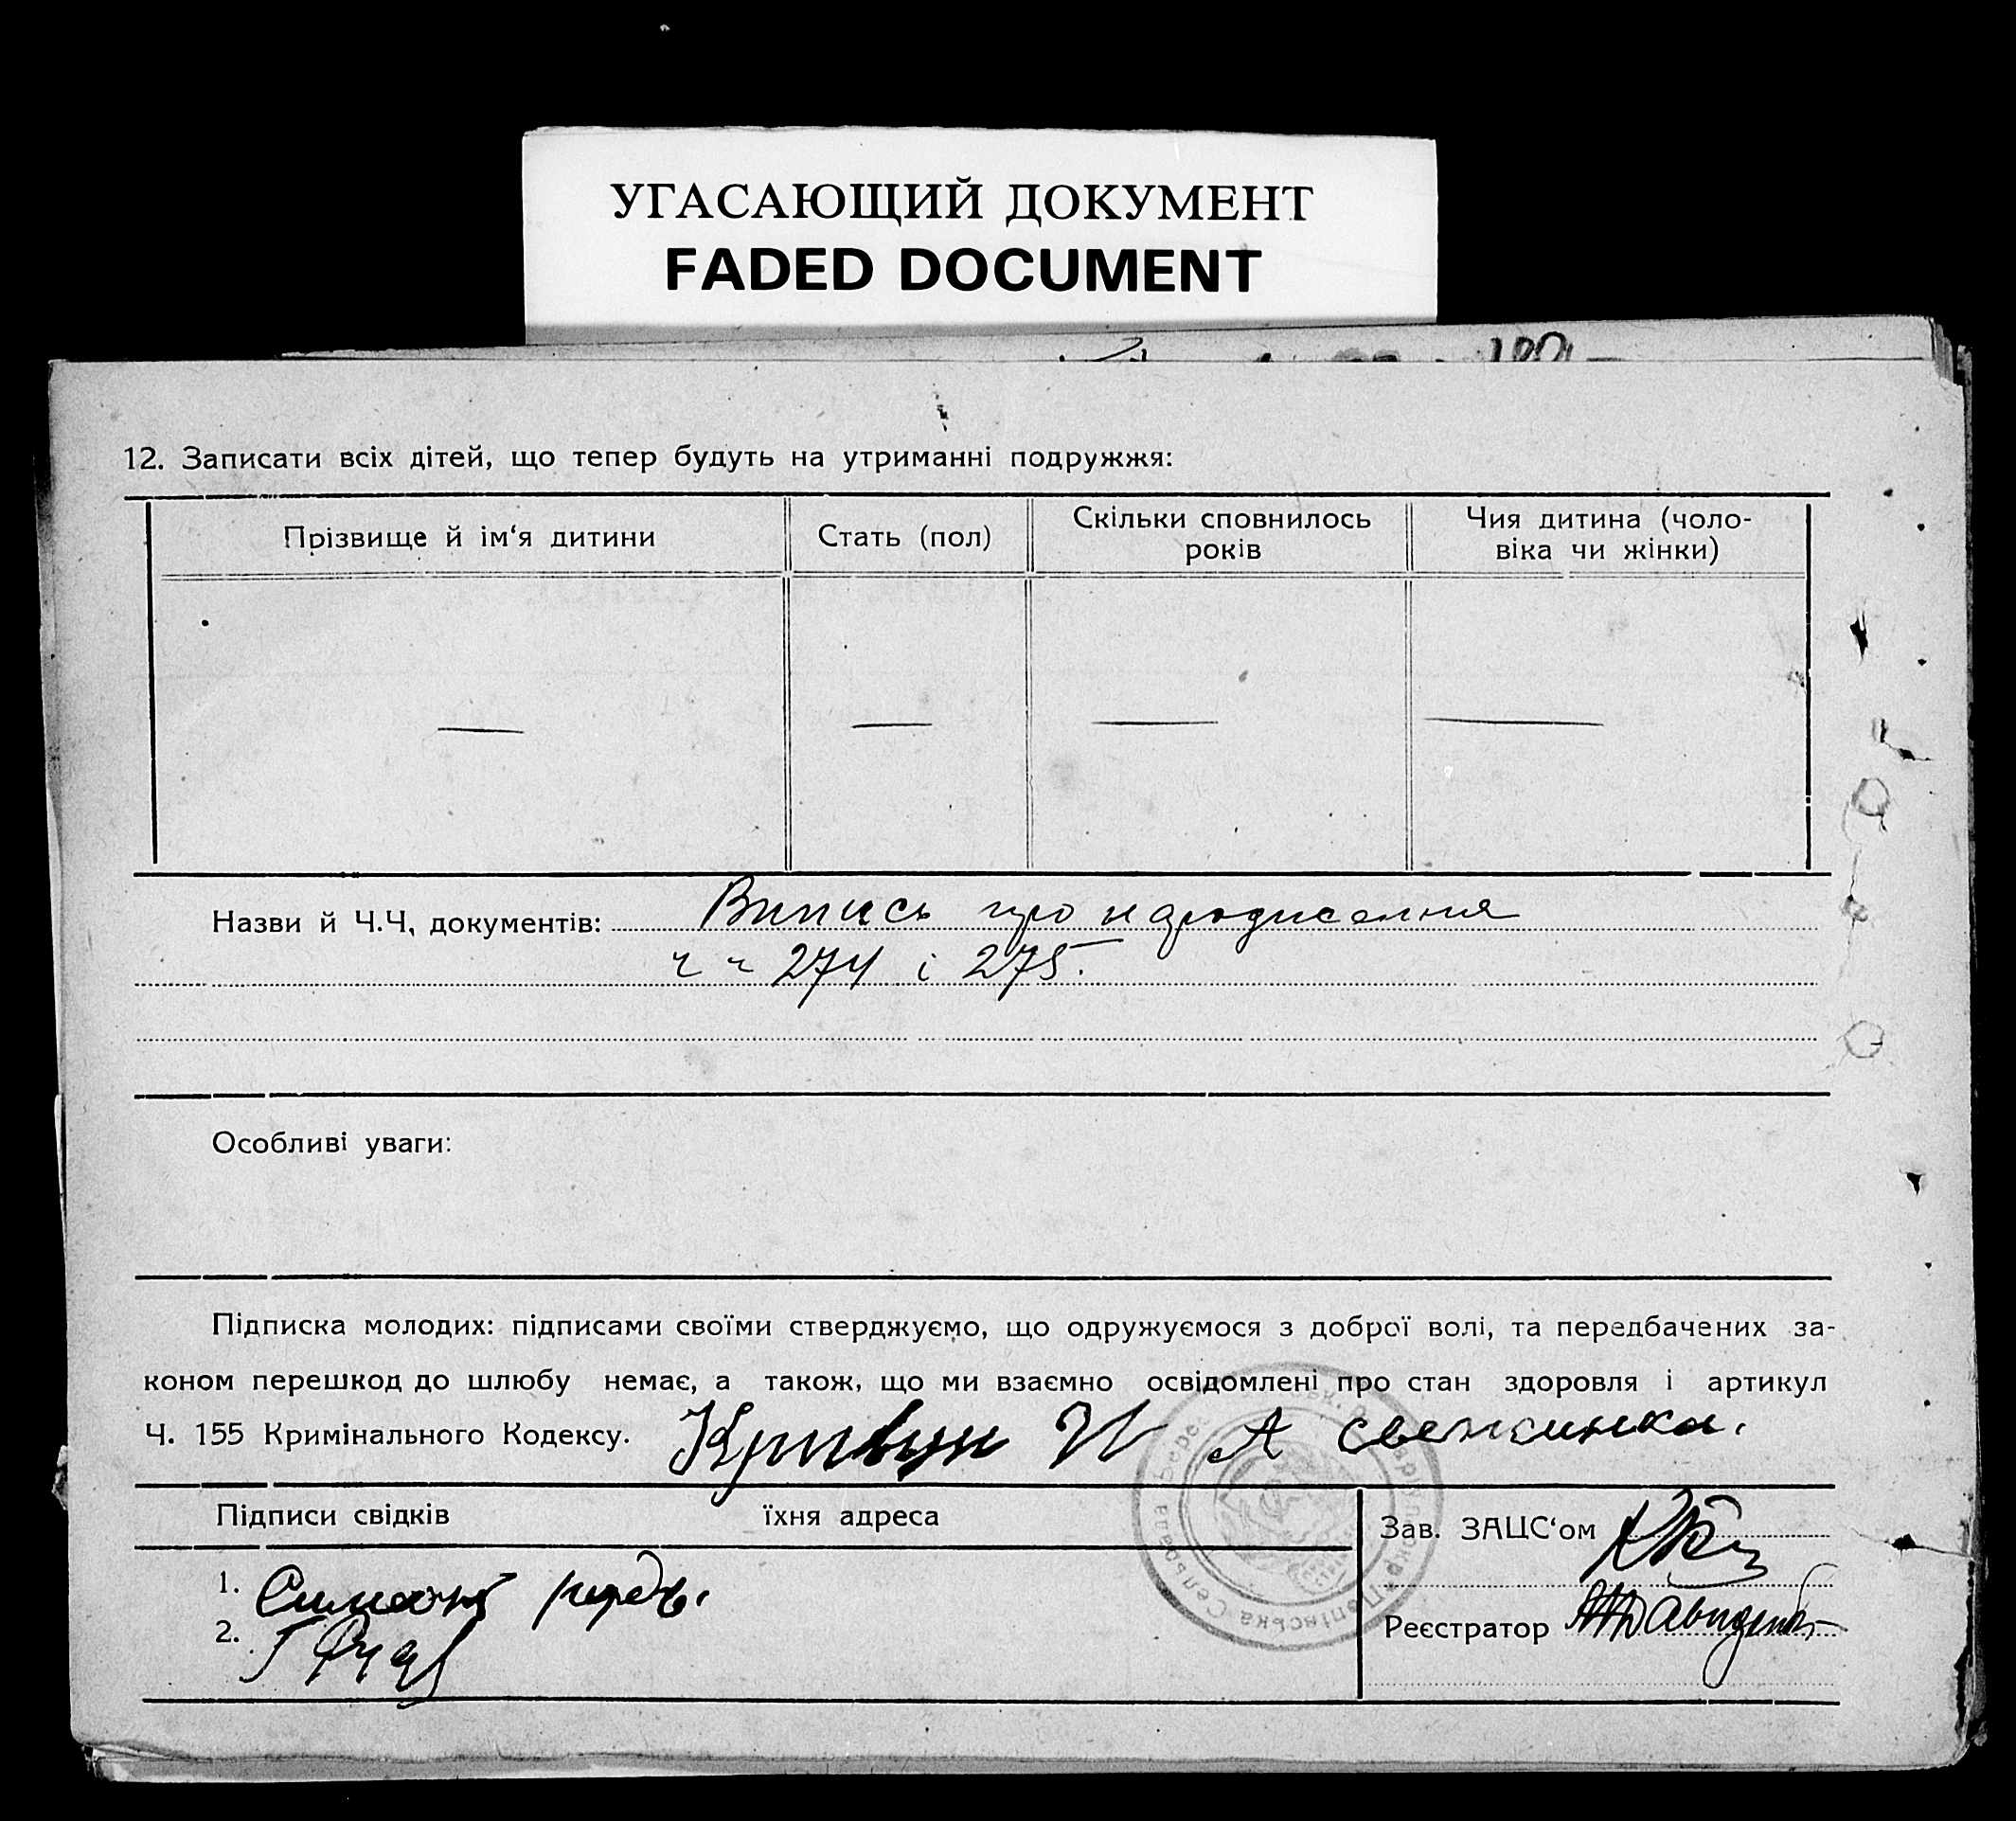 УГАСАЮЩИЙ ДОКУМЕНТ
FADED DOCUMENT
12. Записати всіх дітей, що тепер будуть на утриманні подружжя:
Прізвище й ім‘я дитини
Стать (пол)
Скільки сповнилось
років
Чия дитина (чоло-
віка чи жінки)
— — — —
Назви й Ч.Ч, документів: Випись про народження
ч ч 274 і 275.
Особливі уваги:
Підписка молодих: підписами своїми стверджуємо, що одружуємося з доброї волі, та передбачених за-
коном перешкод до шлюбу немає, а також, що ми взаємно освідомлені про стан здоровля і артикул
Ч. 155 Кримінального Кодексу. Кривун И А свежинка.
Підписи свідків
їхня адреса
Зав. ЗАЦС‘ом
1.
2.
Реєстратор